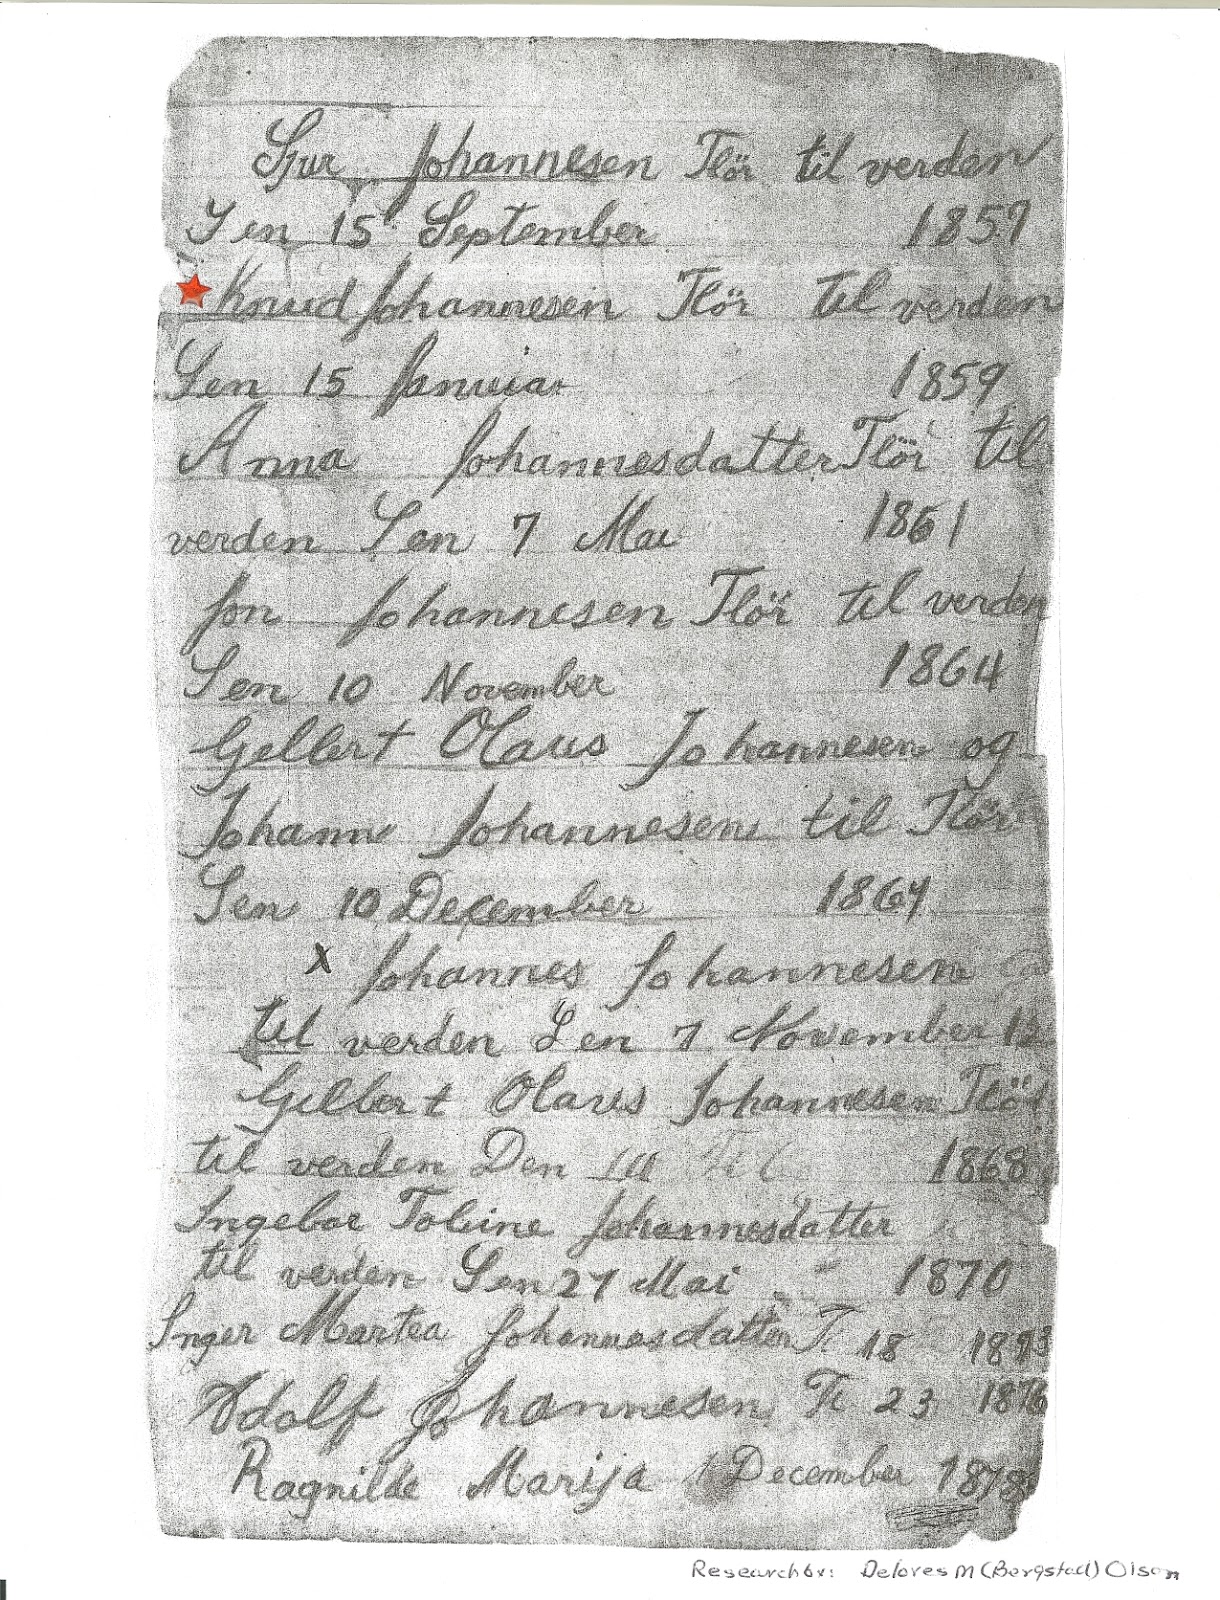 Sjur Johannesen Flör til verden
Den 15 September 1857
Knud Johannesen Flör til verden
Den 15 Januar 1859
Anna Johannesdatter Flör til
verden Den 7 Mai 1861
Jon Johannesen Flör til verden
Den 10 November 1864
Gellert Olaus Johannesen og
Johann Johannesen til Flör
Den 10 December 1864
x Johannes Johannesen
til verden Den 7 November
Gilbert Olaus Johannesen Flör
til verden Den 1868
Ingebor Toline Johannesdatter
til verden Den 27 Mai 1870
Inger Martea Johannesdatter 18
Adolf Johannesen 23 1876
Ragnilde Marija December
Research by: Delores M (Bergstad) Olson